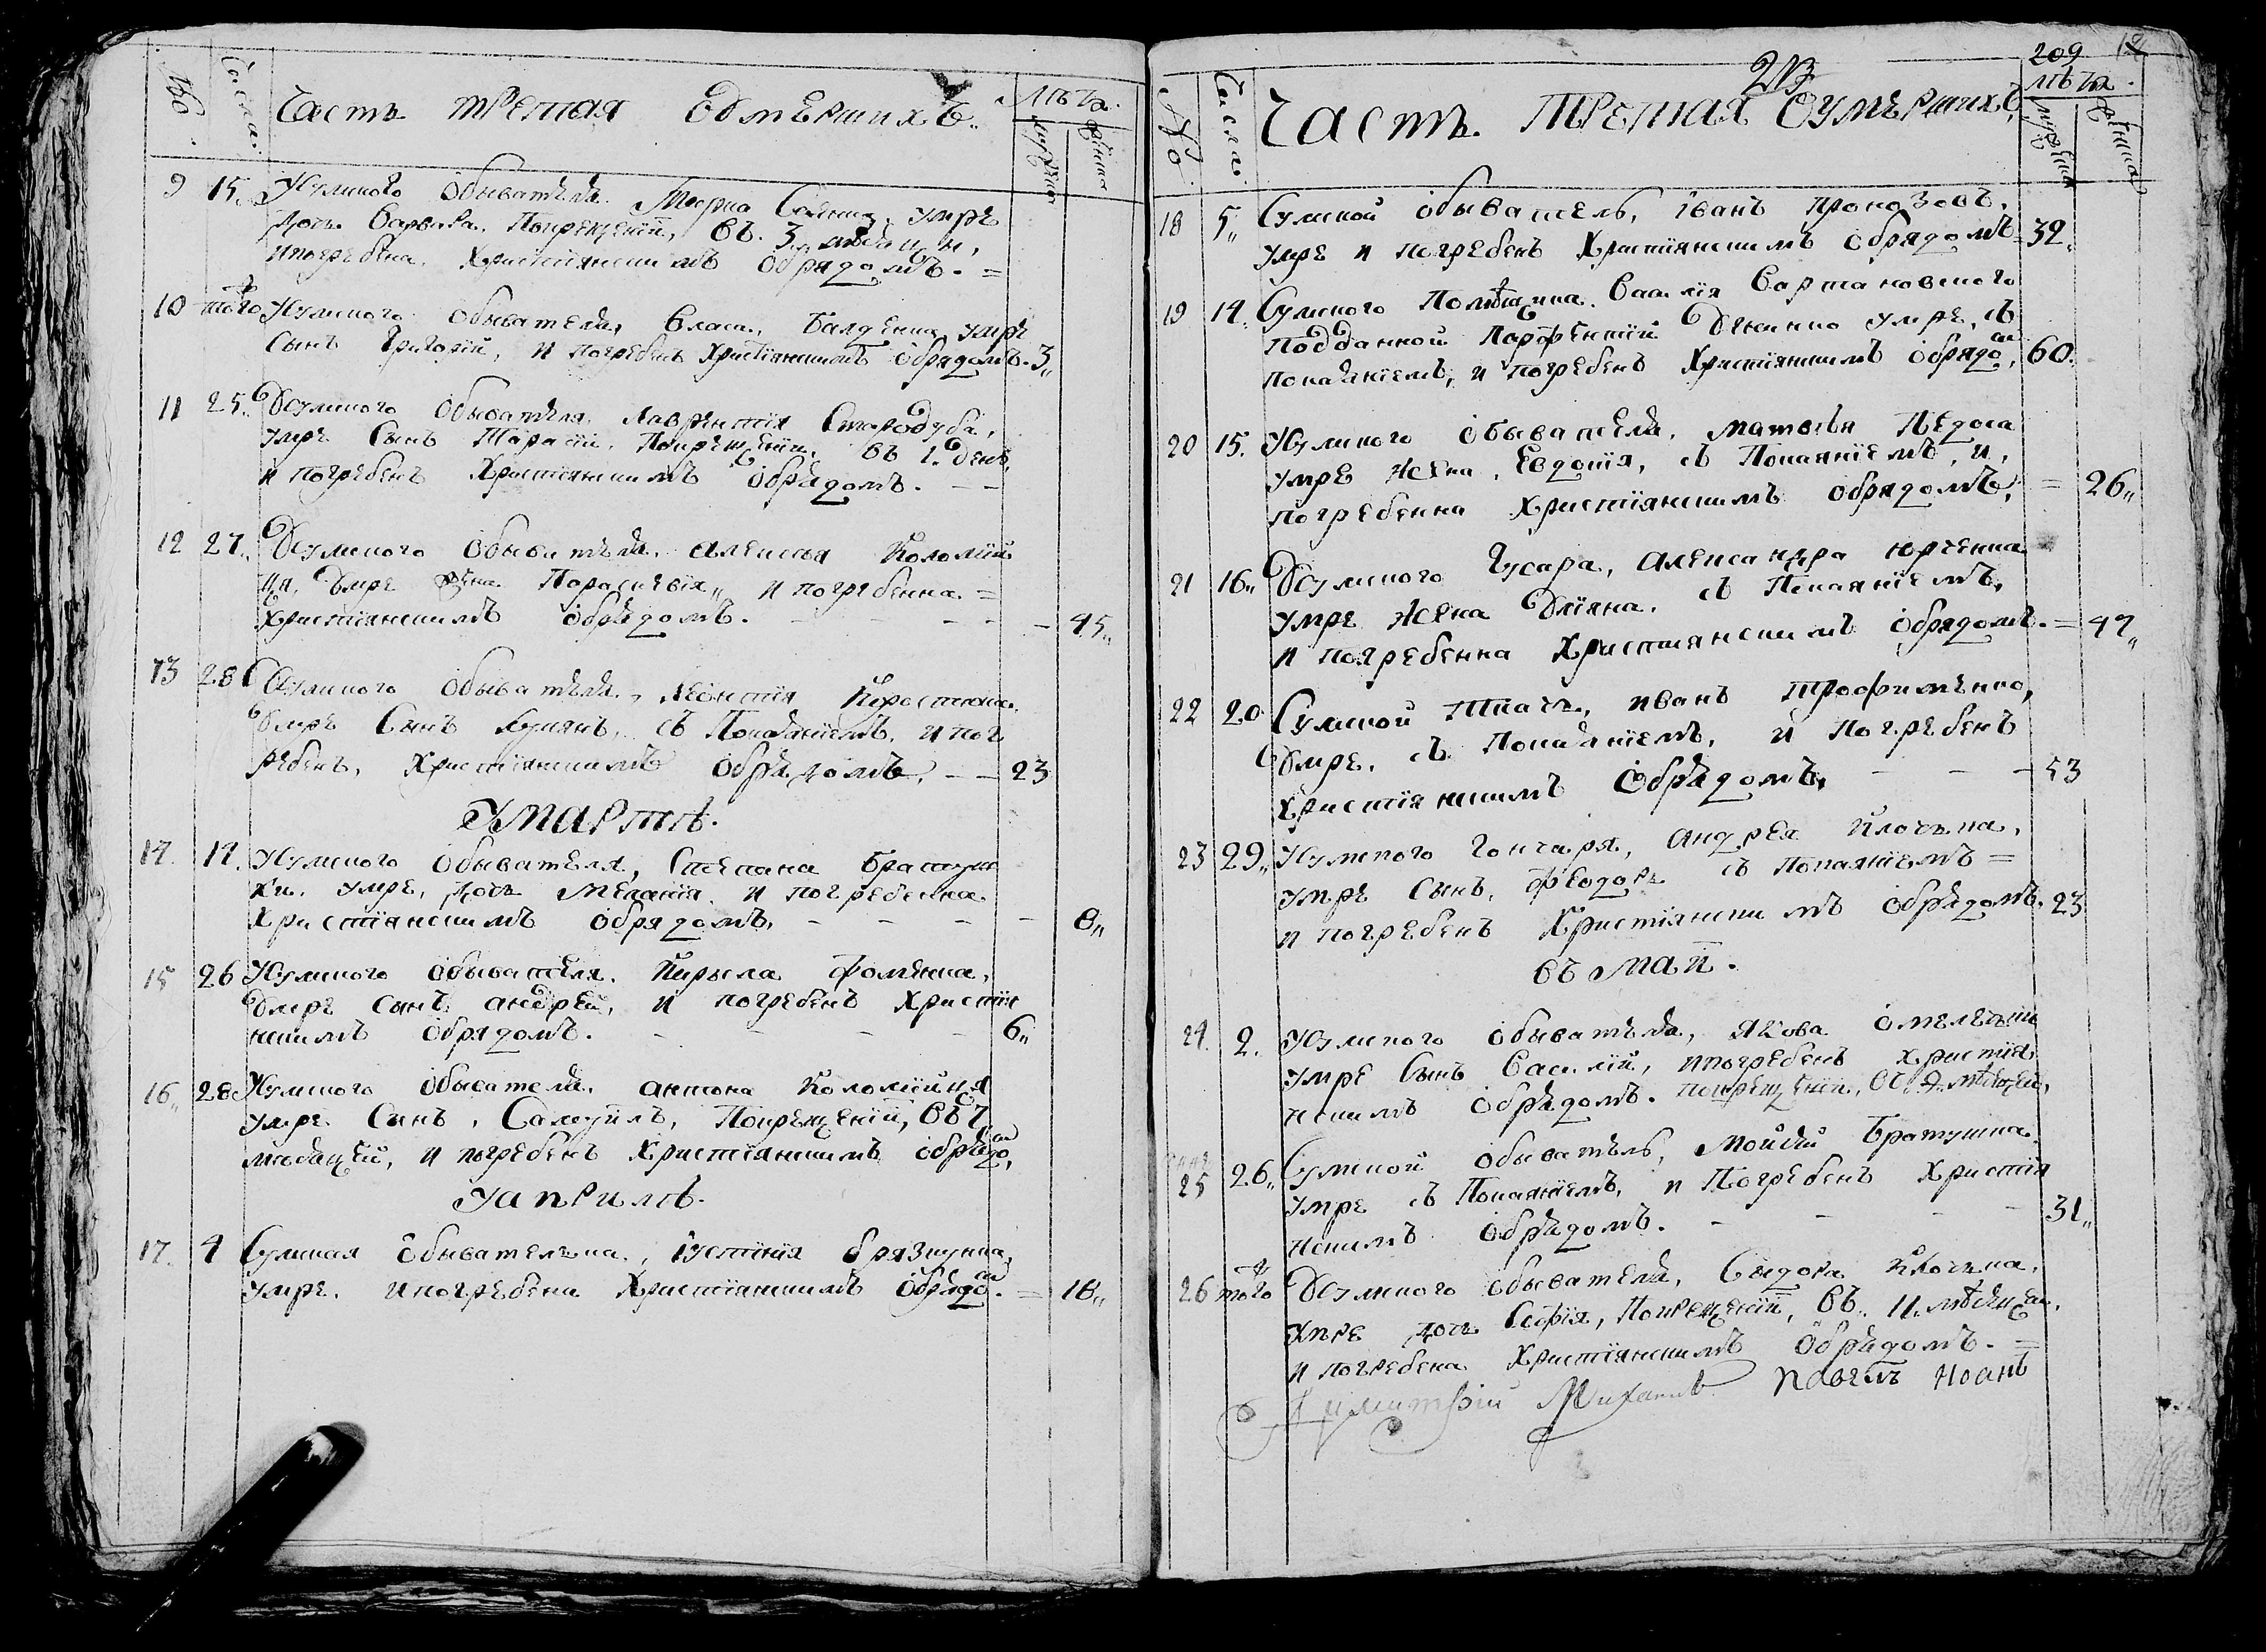 №о. Числа. Часть третая Оумершихъ. лѣта.
мужеска женска
9 15. Усумского обывателя Марка умре
дочь Варвара. Покрещенїи, въ. 3. мѣсяци,
ипогребена. Христїянскимъ обрядомъ. =
10 того Усумского обывателя, Власа, умре
Сынъ Григорїй, и погребенъ Христїянскимъ обрядомъ. 3,,
11 25. Усумского Обывателя, Лаврентїя Стародуба,
умре Сынъ Тарасїй. Покрещенїи. въ 1. день,
и погребенъ Христїянскимъ обрядомъ. – –
12 27. Усумского обывателя, алексѣя Коломїй
ця, Умре жена Параскевїя,, и погребенна =
Христїянскимъ обрядомъ. – – – – 45,,
13 28 Усумского обывателя, Леонтїя
Умре Сынъ съ Покаянїемъ, и пог
ребенъ, Христїянскимъ обрядомъ, – – 23
Умартѣ.
14. 14. Усумского обывателя, Степана Братуш
ки. умре, дочь Меланїя. и погребенна
Христїянскимъ обрядомъ, – – – – 8,,
15 26 Усумского обывателя. Кирыла Фоменка,
Умре сынъ андрей, и погребенъ Христїя
нскимъ обрядомъ. – – – 6,,
16,, 28 Усумского обывателя, антона Коломїйця
умре Сынъ, Самуилъ, Покрещенїи, въ 7,
мѣсяцей, и погребенъ Христїянскимъ обрядо,м
Уаприлѣ.
17. 4 Сумская обывателька, Iустинїя
умре. ипогребенна Христїянскимъ обрядо.м = 18,,
209
213
№о. Числа. Часть. Третая Оумершихъ, лѣта.
мужеска женска
18 5,, Сумской обыватель, Iванъ
умре и погребенъ Христїянскимъ обрядомъ = 32,
19 14. Сумского Помѣщика. Василїя
подданной Парфентїй умре, съ
покаянїемъ, и погребенъ Христїянскимъ обрядо,м 60.
20 15. Усумского обывателя, Матвѣя
умре жена, Евдокїя, съ Покаянїемъ, и,
погребенна Христїянскимъ обрядомъ, = 26,,
21 16,, Усумского Гусара, Александра Юрченка
умре жена Улїяна. съ Покаянїемъ,
и погребенна Христїянскимъ обрядомъ. = 47,,
22 20 Сумской Ткачъ, иванъ Трофименко,
Умре, съ Покаянїемъ, и погребенъ
Христїянскимъ Обрядомъ, – – – 53
23 29,, Усумского Гончаря, андрея Клочька,
умре Сынъ, Феодоръ съ покаянїемъ =
и погребенъ Христїянскимъ обрядомъ, 23
въ маїи.
24. 2. Усумского обывателя, Якова
умре Сынъ Василїй, ипогребенъ христїя
нскимъ обрядомъ. покрещенїи, мѣсяцей,
25 26,, Сумской обыватель, Моисїй Братушка
умре съ Покаянїемъ, и Погребенъ Христїя
нскимъ обрядомъ. – – – – 31,,
26 того Усумского обывателя, Сидора Клочька.
умре дочь Софїя, Покрещенїи, въ. 11. мѣсяцей,
и погребена Христїянскимъ обрядомъ. =
Димитрїй Михаилъ Павелъ Иоанъ